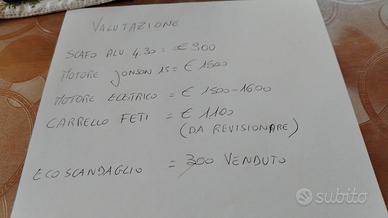 VALUTAZIONE
SCAFO ALU 4.30 = € 900
MOTORE JONSON 15 = € 1500
MOTORE ELETRICO = € 1500-1600
CARRELLO FETI = € 1100
(DA REVISIONARE)
ECOSCANDAGLIO = 300 VENDUTO
subito